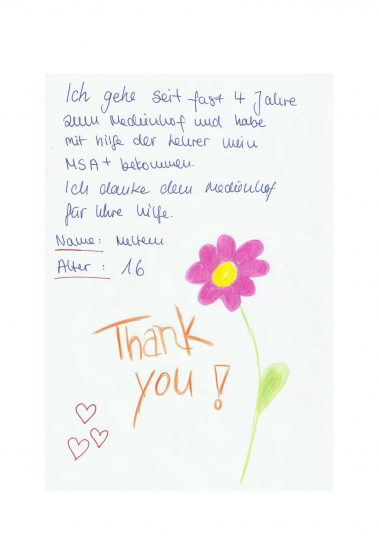 Ich gehe seit fast 4 Jahre
zum Medienhof und habe
mit hilfe der Lehrer mein
MSA+ bekommen.
Ich danke dem Medienhof
für Ihre hilfe.
Name: Meltem
Alter: 16
Thank
you!